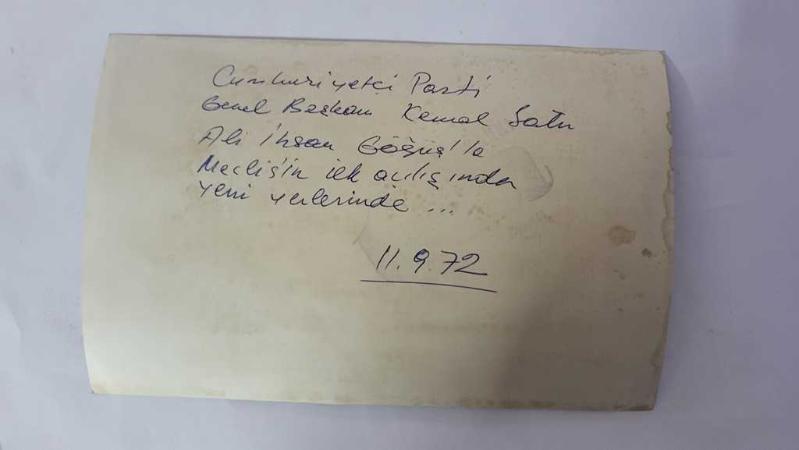 Cumhuriyetçi Parti
Genel Başkanı Kemal Satır
Ali İhsan Göğüş'le
Meclis'in ilk açılışından
yeni yerlerinde ...
11.9.72